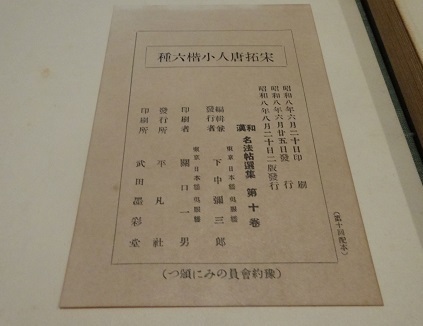 宋拓唐人小楷六種
昭和八年六月二十日印刷
昭和八年六月廿五日發行
昭和八年八月二十日二版發行
和漢名法帖選集 第十卷
東京日本橋吳服橋
編輯兼發行者 下中彌三郎
東京日本橋吳服橋
印刷者 關口一男
發行所 平凡社
印刷所 武田墨彩堂
(第十回配本)
(豫約會員のみに頒つ)